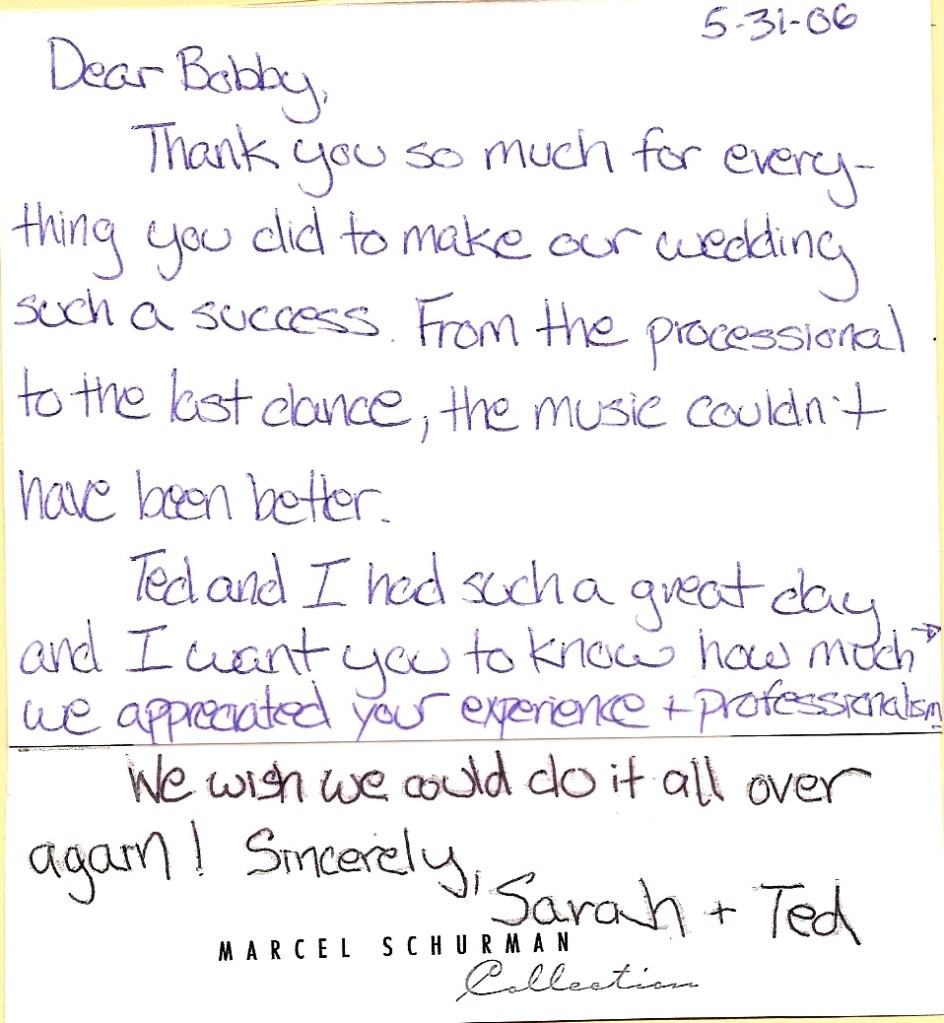 5-31-06
Dear Bobby,
Thank you so much for every-
thing you did to make our wedding
such a success. From the processional
to the last dance, the music couldn't
have been better.
Ted and I had such a great day
and I want you to know how much →
we appreciated your experience + professionalism
We wish we could do it all over
again! Sincerely,
Sarah + Ted
MARCEL SCHURMAN
Collection